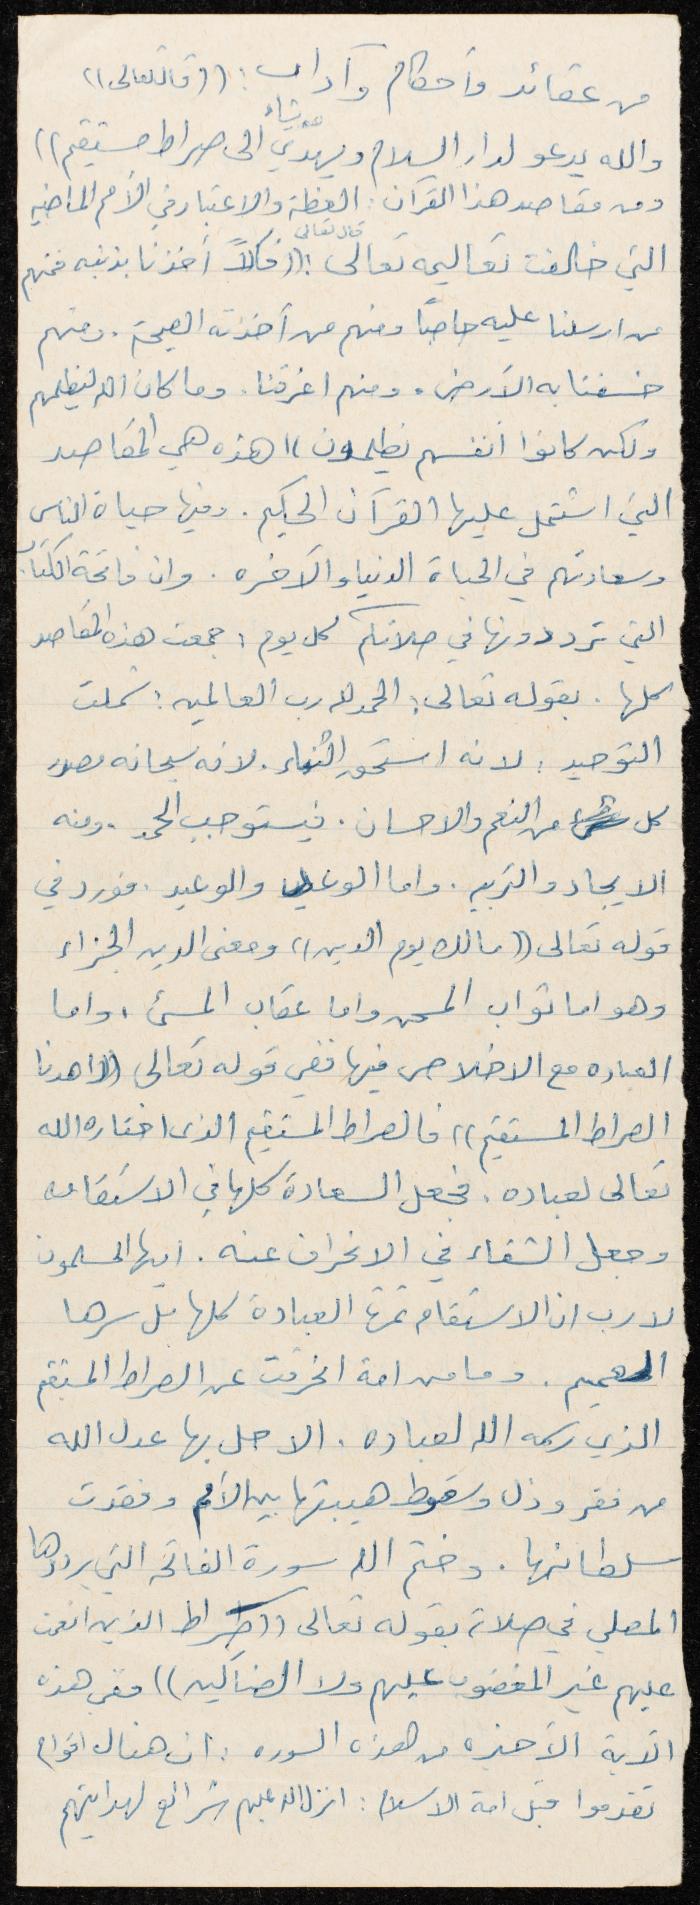 من عقائد وأحكام وآداب : ((قال تعالى))
من يشاء
والله يدعو لدار السلام ويهدي الى صراط مستقيم))
ومن مقاصد هذا القرآن : العظة والاعتبار في الأمم الماضيه
قال تعالى
التي خالفت تعاليمه تعالى : ((فكلاً أخذنا بذنبه فمنهم
من ارسلنا عليه حاصبًا ومنهم من أخذته الصيحة . ومنهم
خسفنا به الأرض . ومنهم اغرقنا . وما كان الله ليظلمهم
ولكن كانوا أنفسهم يظلمون )) هذه هي المقاصد
التي اشتمل عليها القرآن الحكيم . وفيها حياة الناس
وسعادتهم في الحياة الدنيا والآخره . وان فاتحة الكتاب
التي ترددونها في صلاتكم كل يوم : جمعت هذه المقاصد
كلها . بقوله تعالى : الحمد لله رب العالمين : شملت
التوحيد : لانه استحق الثناء . لانه سبحانه مصدر
كل من النعم والاحسان . فيستوجب الحمد . ومنه
الايجاد والتربيه . واما الوعد والوعيد . فورد في
قوله تعالى ((مالك يوم الدين)) ومعنى الدين الجزاء
وهو اما ثواب المحسن واما عقاب المسئ . واما
العباده مع الاخلاص فيها ففي قوله تعالى ((اهدنا
الصراط المستقيم)) فالصراط المستقيم الذى اختاره الله
تعالى لعباده . فجعل السعادة كلها في الاستقامه
وجعل الشقاء في الانحراف عنه . ايها المسلمون
لا رب ان الاستقام ثمرة العبادة كلها بل سرها
الصميم . وما من امة انحرفت عن الصراط المستقيم
الذي رسمه الله لعباده . الا حل بها عدل الله
من فقر وذل وسقوط هيبتها بين الأمم وفقدت
سلطانها . وختم الله سورة الفاتحه التي يرددها
المصلي في صلاته بقوله تعالى ((صراط الذين انعمت
عليهم غير المغضوب عليهم ولا الضآلين)) ففي هذه
الآية الأخيره من هذه السوره : ان هناك اقوام
تقدموا قبل امة الاسلام : انزل الله عليهم شرائع لهدايتهم